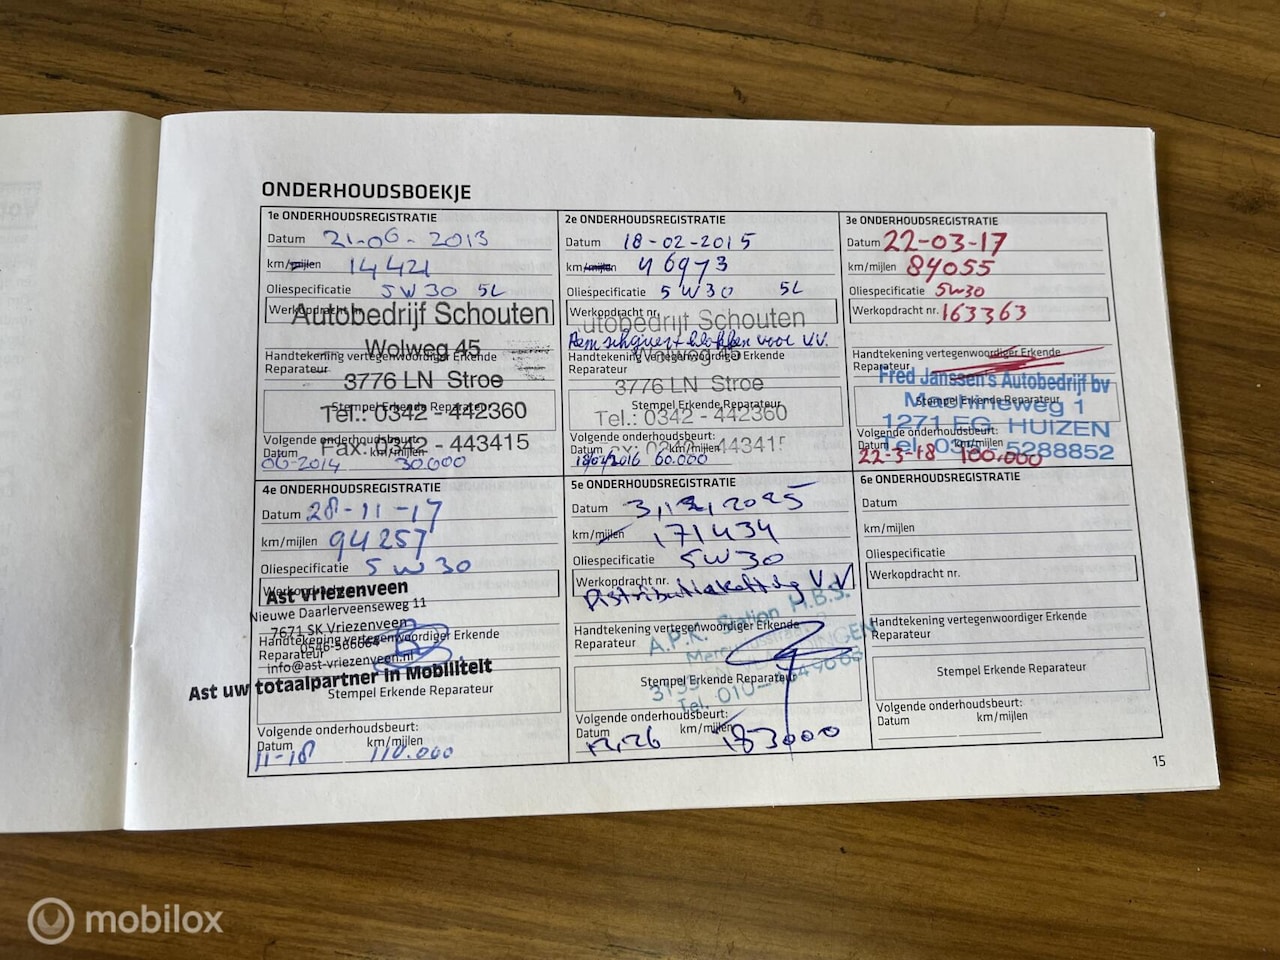 ONDERHOUDSBOEKJE
1e ONDERHOUDSREGISTRATIE
Datum 21-06-2013
km/mijlen 14421
Oliespecificatie 5W30 5L
Werkopdracht nr.
Autobedrijf Schouten
Wolweg 45
Handtekening vertegenwoordiger Erkende
Reparateur
3776 LN Stroe
Stempel Erkende Reparateur
Tel.: 0342 - 442360
Fax: 0342 - 443415
Volgende onderhoudsbeurt:
Datum km/mijlen
06-2014 30.000
2e ONDERHOUDSREGISTRATIE
Datum 18-02-2015
km/mijlen 46973
Oliespecificatie 5W30 5L
Werkopdracht nr.
Autobedrijf Schouten
Remschijven+blokken voor V.V.
Wolweg 45
Handtekening vertegenwoordiger Erkende
Reparateur
3776 LN Stroe
Stempel Erkende Reparateur
Tel.: 0342 - 442360
443415
Volgende onderhoudsbeurt:
Datum km/mijlen
2016 60.000
3e ONDERHOUDSREGISTRATIE
Datum 22-03-17
km/mijlen 84055
Oliespecificatie 5W30
Werkopdracht nr. 163363
Handtekening vertegenwoordiger Erkende
Reparateur
Fred Janssen's Autobedrijf bv
Stempel Erkende Reparateur
1271 HUIZEN
Volgende onderhoudsbeurt:
Tel. 5288852
Datum km/mijlen
22-3-18 100.000
4e ONDERHOUDSREGISTRATIE
Datum 28-11-17
km/mijlen 94257
Oliespecificatie 5W30
Werkopdracht nr.
Ast Vriezenveen
Nieuwe Daarlerveenseweg 11
7671 SK Vriezenveen
Handtekening vertegenwoordiger Erkende
Reparateur
0546-566664
info@ast-vriezenveen.nl
Ast uw totaalpartner in Mobiliteit
Stempel Erkende Reparateur
Volgende onderhoudsbeurt:
Datum km/mijlen
11-18 110.000
5e ONDERHOUDSREGISTRATIE
Datum 3,12,2025
km/mijlen 171434
Oliespecificatie 5W30
Werkopdracht nr.
Distributieketting V.V
A.P.K. Station M.B.S.
Handtekening vertegenwoordiger Erkende
Reparateur
Stempel Erkende Reparateur
Volgende onderhoudsbeurt:
Datum km/mijlen
12,26 183000
6e ONDERHOUDSREGISTRATIE
Datum
km/mijlen
Oliespecificatie
Werkopdracht nr.
Handtekening vertegenwoordiger Erkende
Reparateur
Stempel Erkende Reparateur
Volgende onderhoudsbeurt:
Datum km/mijlen
15
mobilox